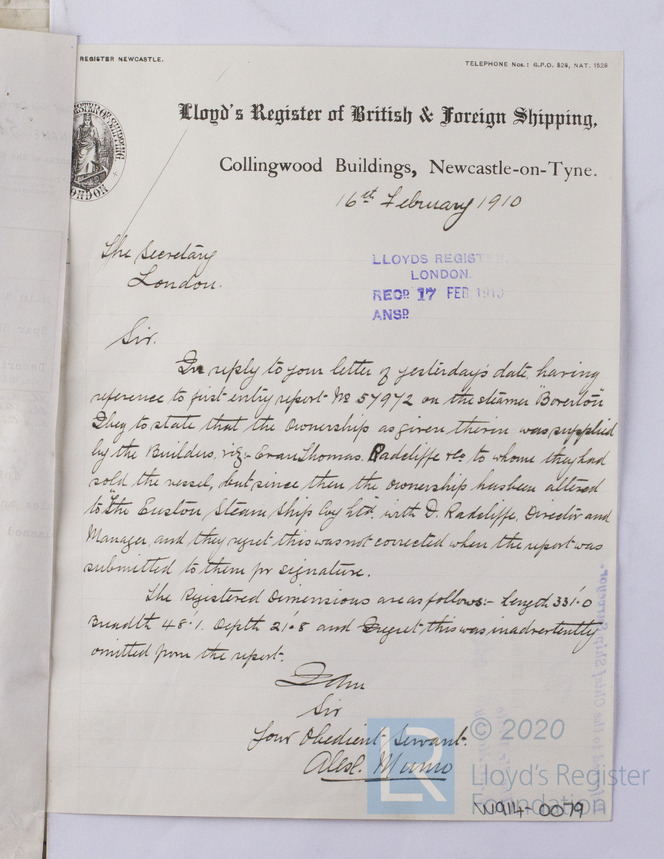 REGISTER NEWCASTLE.
TELEPHONE Nos.: G.P.O. 529, NAT. 1529
Lloyd's Register of British & Foreign Shipping,
Collingwood Buildings, Newcastle-on-Tyne.
16th February 1910
The Secretary
London.
LLOYDS REGIST
LONDON.
RECD. 17 FEB 1910
ANSD.
Sir.
In reply to your letter of yesterday's date, having
reference to first entry report No 57972 on the steamer "Boverton"
I beg to state that the Ownership as given therein was supplied
by the Builders, viz- Evan Thomas. Radcliffe & Co to whom they had
sold the vessel, but since then the ownership has been altered
to "The Euston Steam Ship Coy Ltd. with D. Radcliffe, Director and
Manager, and they regret this was not corrected when the report was
submitted to them for signature.
The Registered Dimensions are as follows:- Length 331'.0
Breadth 48'.1. Depth 21'.8 and I regret, this was inadvertently
omitted from the report.
I am
Sir
Your Obedient Servant.
Alexr. Munro
LR © 2020
Lloyd's Register
Foundation
W914-0079